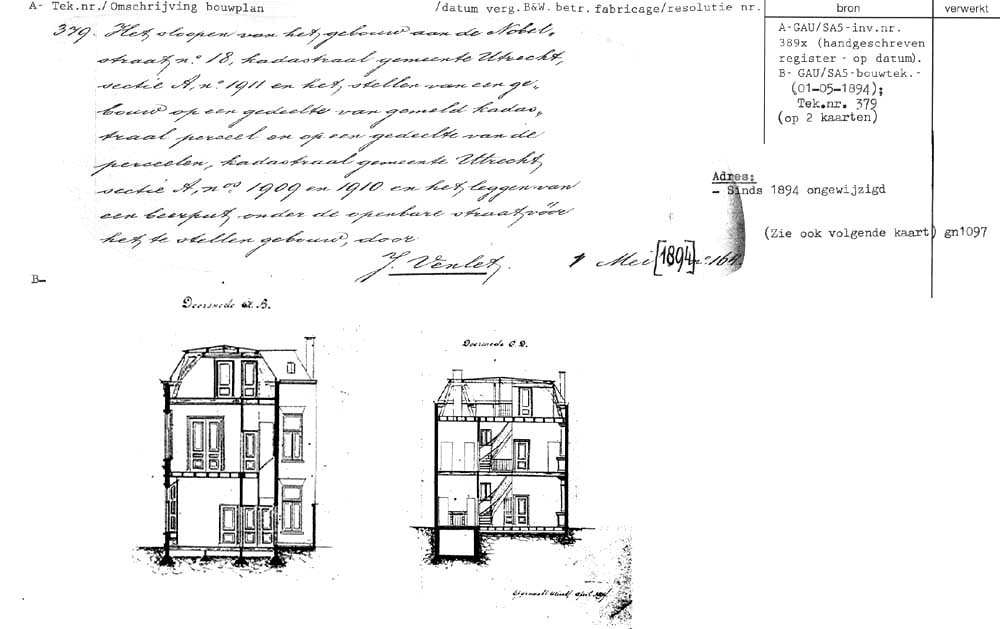 A- Tek.nr./ Omschrijving bouwplan /datum verg.B&W. betr. fabricage/resolutie nr. bron verwerkt
379. Het sloopen van het gebouw aan de Nobel-
straat, no. 18, kadastraal gemeente Utrecht,
sectie A, no. 1911 en het stellen van een ge-
bouw op een gedeelte van gemeld kadas-
traal perceel en op een gedeelte van de
perceelen, kadastraal gemeente Utrecht,
sectie A, nos. 1909 en 1910 en het leggen van
een beerput, onder de openbare straat, vóór
het te stellen gebouw, door
J. Venlet.
1 Mei [1894] no. 164
A-GAU/SA5-inv.nr.
389x (handgeschreven
register - op datum).
B- GAU/SA5-bouwtek.-
(01-05-1894);
Tek.nr. 379
(op 2 kaarten)
Adres:
- Sinds 1894 ongewijzigd
(Zie ook volgende kaart) gn1097
B-
Doorsnede A. B.
Doorsnede C. D.
April